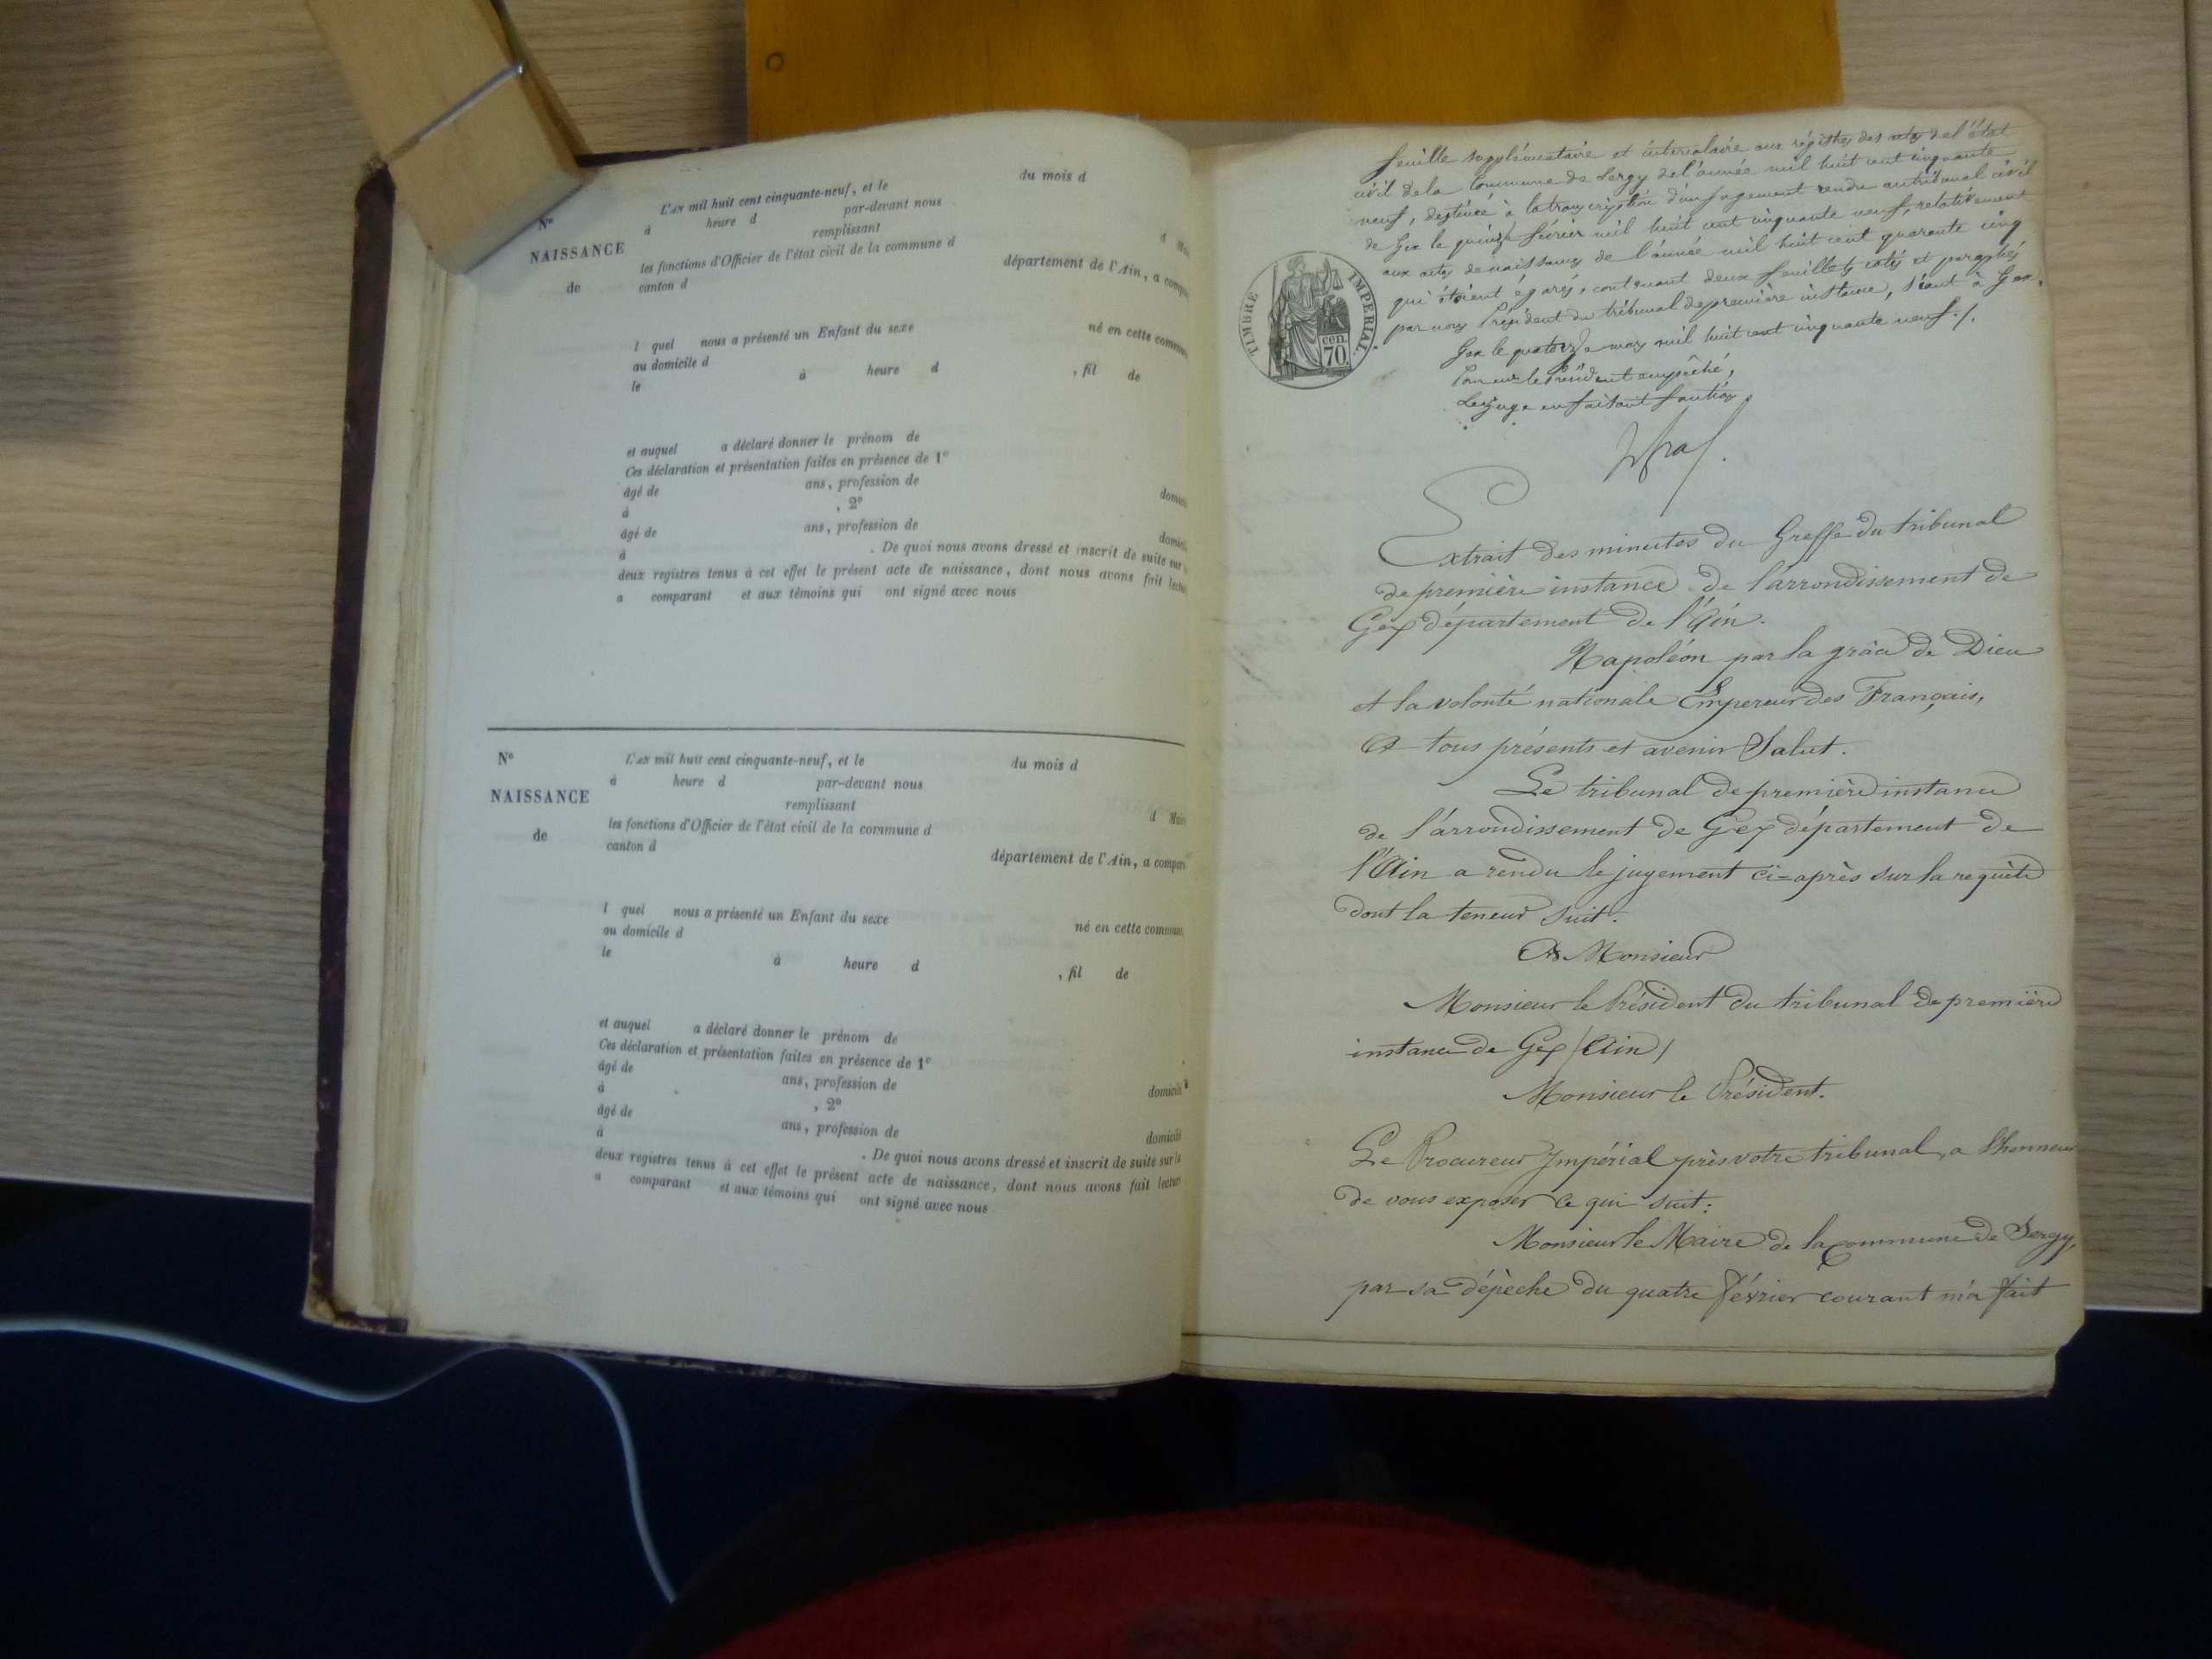 L'AN mil huit cent cinquante-neuf, et le du mois d
N° à heure d par-devant nous
remplissant d Mai
NAISSANCE les fonctions d'Officier de l'état civil de la commune d
de canton d département de l'Ain, a compa
l quel nous a présenté un Enfant du sexe né en cette commun
au domicile d
le à heure d , fil de
et auquel a déclaré donner le prénom de
Ces déclaration et présentation faites en présence de 1°
âgé de ans, profession de domici
à , 2°
âgé de ans, profession de domici
à . De quoi nous avons dressé et inscrit de suite sur
deux registres tenus à cet effet le présent acte de naissance, dont nous avons fait lectur
a comparant et aux témoins qui ont signé avec nous
N° L'AN mil huit cent cinquante-neuf, et le du mois d
à heure d par-devant nous
NAISSANCE remplissant d Maire
de les fonctions d'Officier de l'état civil de la commune d
canton d département de l'Ain, a compar
l quel nous a présenté un Enfant du sexe né en cette commun
au domicile d
le à heure d , fil de
et auquel a déclaré donner le prénom de
Ces déclaration et présentation faites en présence de 1°
âgé de ans, profession de domicilié
à , 2°
âgé de ans, profession de domicilié
à . De quoi nous avons dressé et inscrit de suite sur le
deux registres tenus à cet effet le présent acte de naissance, dont nous avons fait lectur
a comparant et aux témoins qui ont signé avec nous
feuille supplémentaire et intercalaire aux régistres des actes de l'état
civil de la Commune de Sergy de l'année mil huit cent cinquante
neuf, destinée à la transcription d'un jugement rendu au tribunal civil
de Gex le quinze février mil huit cent cinquante neuf, relativement
aux actes de naissances de l'année mil huit cent quarante cinq
qui étaient égarés, contenant deux feuillets cotés et paraphés
par nous Président du tribunal de première instance, séant à Gex.
Gex le quatorze mars mil huit cent cinquante neuf ./.
Pour le Président empêché,
Le Juge en faisant fonction
TIMBRE IMPERIAL.
70 cen.
Extrait des minutes du Greffe du tribunal
de première instance de l'arrondissement de
Gex département de l'Ain.
Napoléon par la grâce de Dieu
et la volonté nationale Empereur des Français,
A tous présents et avenir Salut.
Le tribunal de première instance
de l'arrondissement de Gex département de
l'Ain a rendu le jugement ci=après sur la requête
dont la teneur suit:
A Monsieur
Monsieur le Président du tribunal de première
instance de Gex (Ain)
Monsieur le Président.
Le Procureur Impérial près votre tribunal, a l'honneur
de vous exposer ce qui suit:
Monsieur le Maire de la commune de Sergy,
par sa dépèche du quatre février courant m'a fait